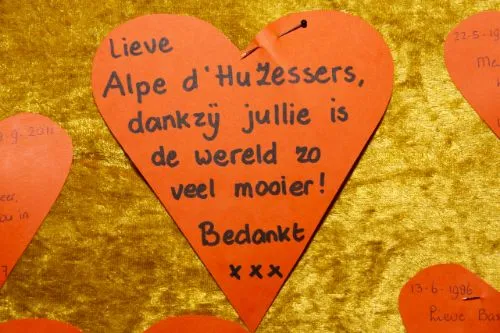 Lieve
Alpe d'HuZessers,
dankzij jullie is
de wereld zo
veel mooier!
Bedankt
xxx
22-5-19
Me
9-9-2011
in
7
13-6-1996
Lieve Bas